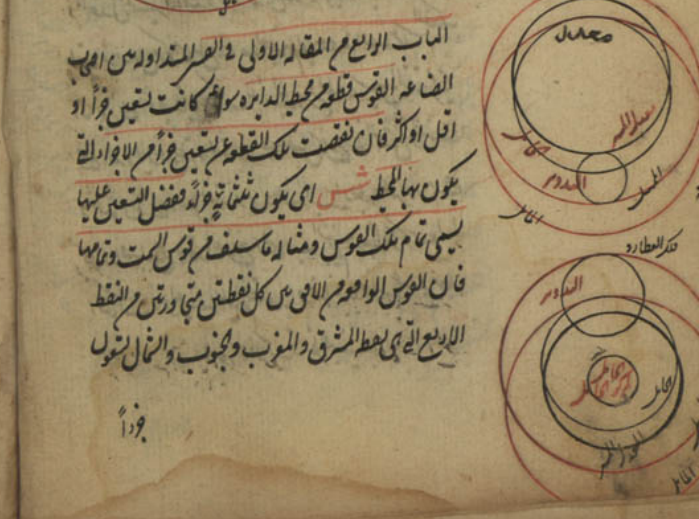 الباب الرابع من المقالة الاولى في القسى المتداولة بين اصحاب
الصناعة القوس قطعة من محيط الدايرة سواء كانت تسعين جزأ او
اقل او اكثر فان نقصت تلك القطعة عن تسعين جزأ من الاجزاء التي
يكون بها المحيط شس اى يكون ثلثماية جزء ففضل التسعين عليها
يسمى تمام تلك القوس ومثاله ما سلف من قوس السمت وتمامها
فان القوس الواقعة من الافق بين كل نقطتين متجاورتين من النقط
الاربع التي هى نقطة المشرق والمغرب والجنوب والشمال تسعون
جزءاً
الحامل
التدوير
الممثل
المائل
فلك العطارد
التدوير
الحامل
المائل